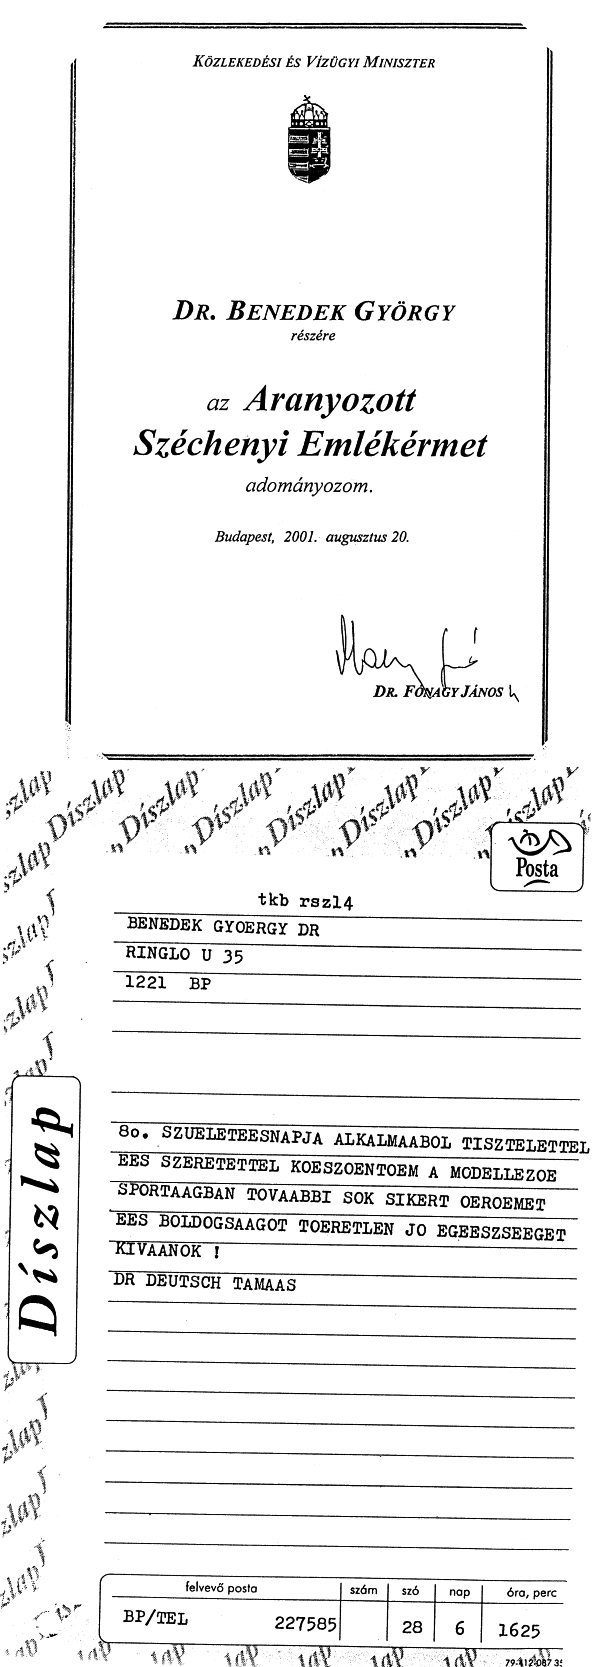 KÖZLEKEDÉSI ÉS VÍZÜGYI MINISZTER
DR. BENEDEK GYÖRGY
részére
az Aranyozott
Széchenyi Emlékérmet
adományozom.
Budapest, 2001. augusztus 20.
DR. FÓNAGY JÁNOS
„Díszlap” „Díszlap” „Díszlap” „Díszlap” „Díszlap” „Díszlap”
Posta
tkb rszl4
BENEDEK GYOERGY DR
RINGLO U 35
1221 BP
Díszlap
8o. SZUELETEESNAPJA ALKALMAABOL TISZTELETTEL
EES SZERETETTEL KOESZOENTOEM A MODELLEZOE
SPORTAAGBAN TOVAABBI SOK SIKERT OEROEMET
EES BOLDOGSAAGOT TOERETLEN JO EGEESZSEEGET
KIVAANOK !
DR DEUTSCH TAMAAS
felvevő posta szám szó nap óra, perc
BP/TEL 227585 28 6 1625